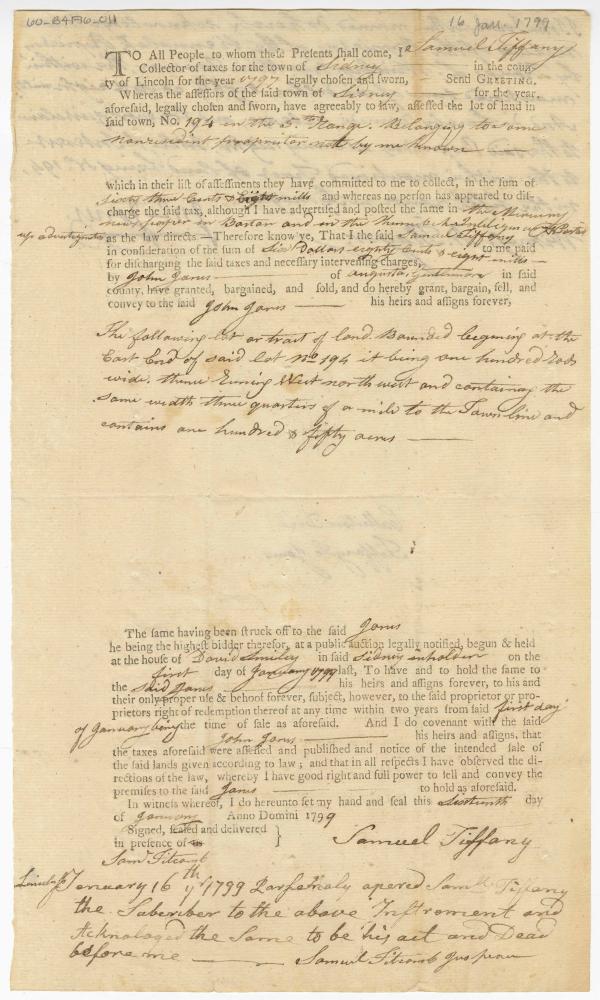 60-B4F16-011
16 Jan. 1799
TO All People to whom these Presents shall come, I Samuel Tiffany
Collector of taxes for the town of Sidney in the coun-
ty of Lincoln for the year 1797 legally chosen and sworn, Send GREETING.
Whereas the assessors of the said town of Sidney for the year.
aforesaid, legally chosen and sworn, have agreeably to law, assessed the lot of land in
said town, No. 194 in the 5.th Range. Belonging to some
nonresident proprietor not by me known
which in their list of assessments they have committed to me to collect, in the sum of
sixty three Cents & Eight mills and whereas no person has appeared to dis-
charge the said tax, although I have advertised and posted the same in the Mercury
newspaper in Boston and in the Kennebeck Inteligencer
as the law directs—Therefore know ye, That I the said Samuel Tiffany
in consideration of the sum of Six Dollars eighty Cents & eight mills to me paid
for discharging the said taxes and necessary intervening charges,
by John Jones of Augusta, Gentleman in said
county, have granted, bargained, and sold, and do hereby grant, bargain, sell, and
convey to the said John Jones his heirs and assigns forever,
The following lot or tract of land Bounded begening at the
East End of said lot No 194 it being one hundred Rods
wide. thence Runing West north west and containing the
same width three quarters of a mile to the Town line and
contains one hundred & fifty acres
The same having been struck off to the said Jones
he being the highest bidder therefor, at a public auction legally notified, begun & held
at the house of David Smiley in said Sidney inholder on the
first day of January 1799 last, To have and to hold the same to
the said Jones his heirs and assigns forever, to his and
their only proper use & behoof forever, subject, however, to the said proprietor or pro-
prietors right of redemption thereof at any time within two years from said first day
of January being the time of sale as aforesaid. And I do covenant with the said
John Jones his heirs and assigns, that
the taxes aforesaid were assessed and published and notice of the intended sale of
the said lands given according to law; and that in all respects I have observed the di-
rections of the law, whereby I have good right and full power to sell and convey the
premises to the said Jones to hold as aforesaid.
In witness whereof, I do hereunto set my hand and seal this Sixteenth day
of January Anno Domini 1799
Signed, sealed and delivered
in presence of us
Samuel Tiffany
Saml Titcomb
Lincoln ss January 16th 1799 Parsenaly apered Samll Tiffany
the Subcriber to the above Instroment and
Acknolaged the Same to be his act and Dead
before me Samuel Titcomb Jus peace